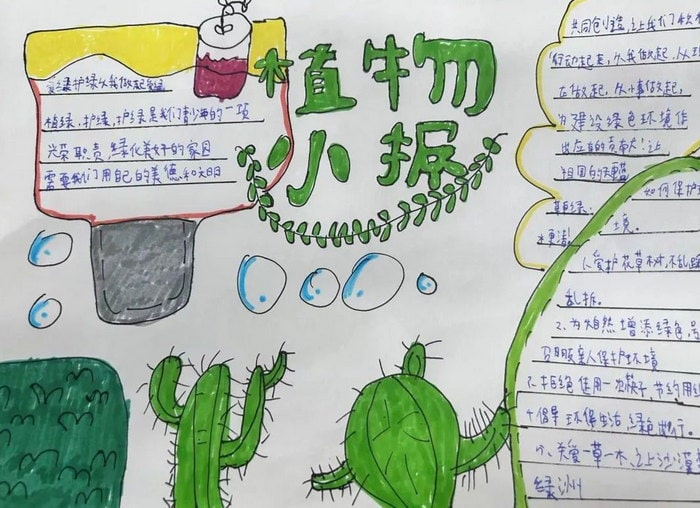 植物
小报
爱绿护绿从我做起
植绿、护绿、护绿是我们青少年的一项
光荣职责,绿化美好的家园
需要我们用自己的美德和文明
共同创造,让我们
行动起来,从我做起,从
在做起,从小事做起,
为建设绿色环境作
出应有的贡献!让
祖国的
草更绿,
水更清!
如何保护
境。
1、爱护花草树木,不乱
乱折。
2、为大自然增添绿色,
亲人保护环境
3、拒绝使用一次筷子,节约用
倡导环保生活,绿色出行。
关爱一草一木,让沙漠
绿洲